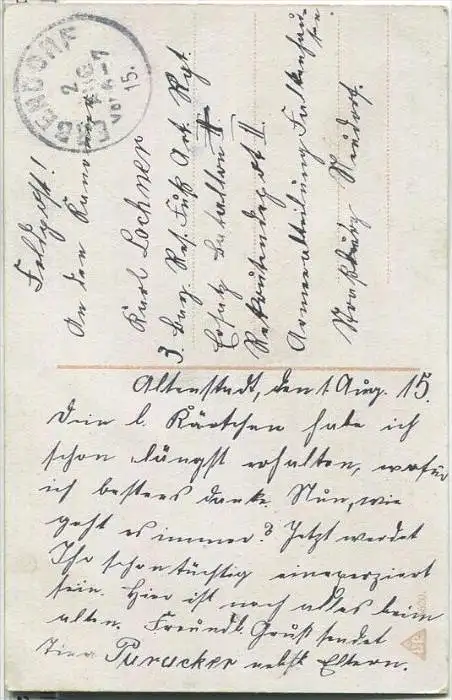 ERBENDORF
2 AUG
Vor 6-7
15.
Feldpost!
An den Kanonier
Karl Lochner
3. Bay. Res. Fuß Art. Rgt.
Ersatz Batallon
Rekrutendepot II.
Armeeabteilung Falkenhausen
Straßburg Neudorf.
Altenstadt, den 1. Aug. 15.
Dein l. Kärtchen habe ich
schon längst erhalten, wofür
ich bestens danke. Nun, wie
geht es immer? Jetzt werdet
Ihr schon tüchtig einexerziert
sein. Hier ist noch alles beim
alten. Freundl. Gruß sendet
Puracker nebst Eltern.